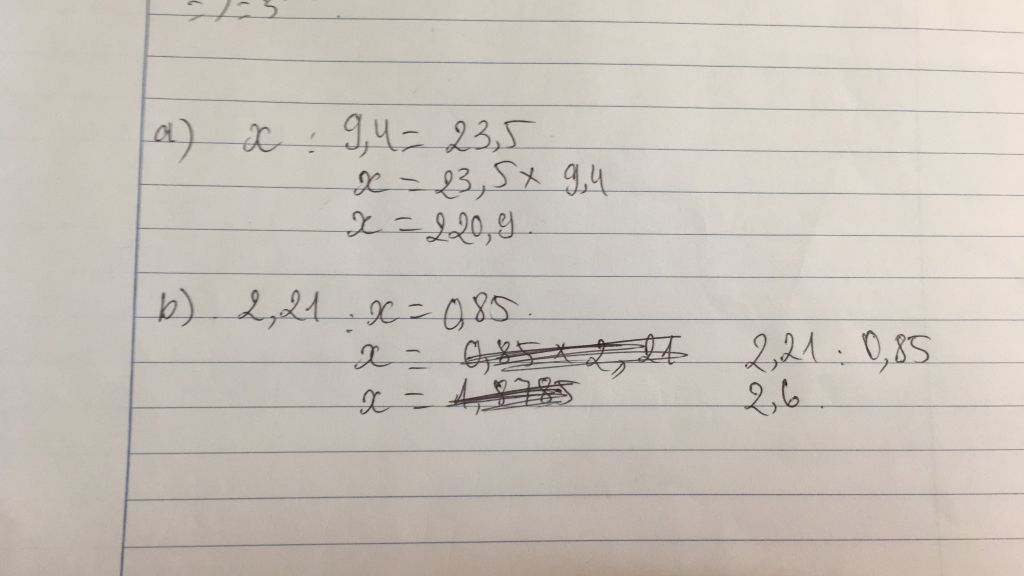 a) x : 9,4 = 23,5
x = 23,5 x 9,4
x = 220,9.
b) 2,21 : x = 0,85.
x = 0,85 x 2,21 2,21 : 0,85
x = 1,8785 2,6.